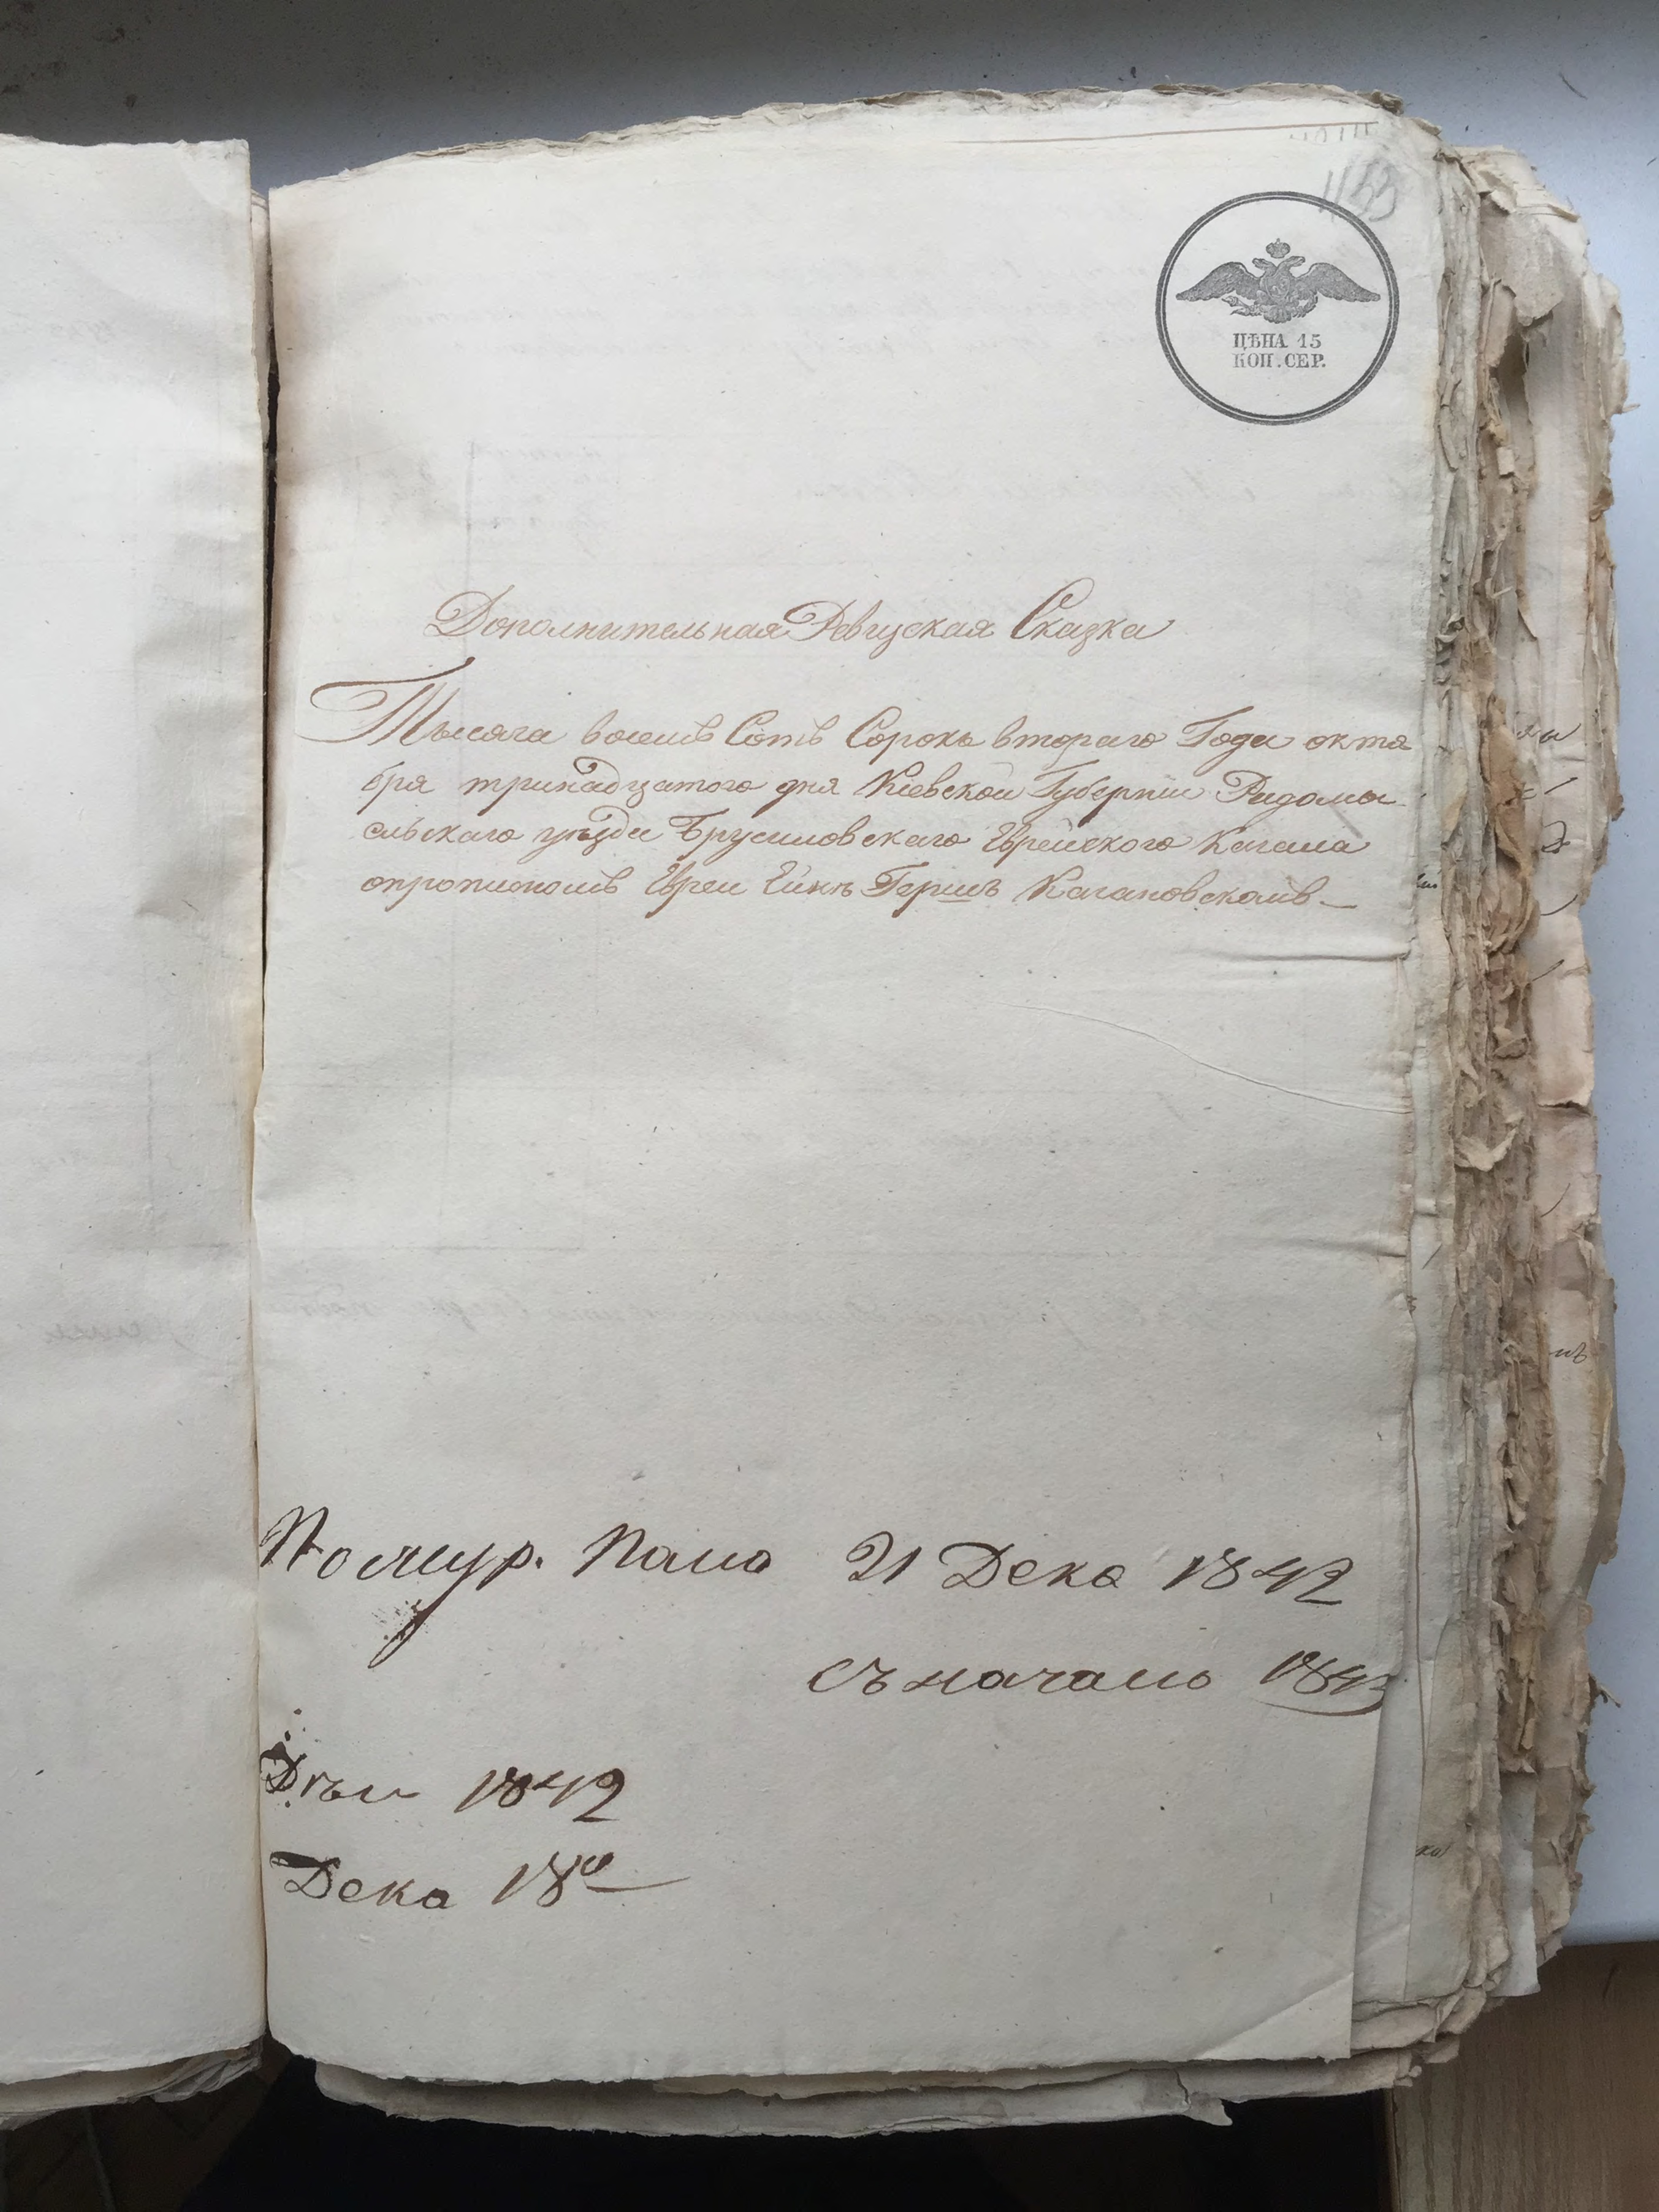 1153
ЦѢНА 15
КОП. СЕР.
Дополнительная Ревизская Сказка
Тысяча восемъ Сотъ Сорокъ втораго Года октя
бря тринадцатого дня Кіевской Губерніи Радомы
сльскаго уѣзда Брусиловскаго Еврейского Кагала
опрописномъ Евреи Ейнѣ Гершъ Кагановскомъ
21 Дека 1842
съ начало 1843
1842
Дека 18